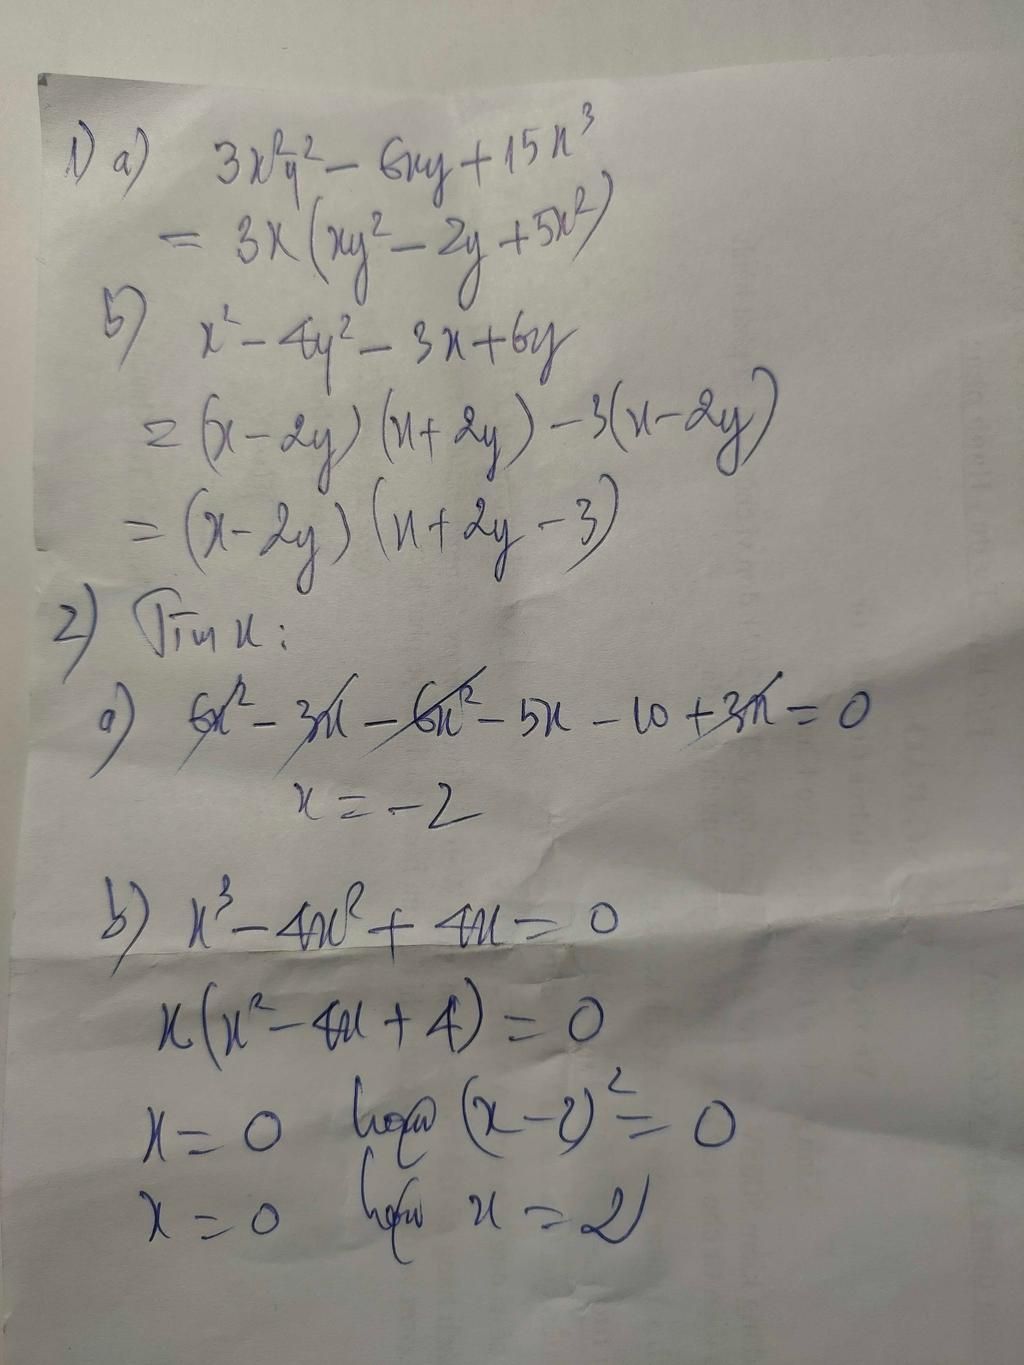 1) a) 3x²y² - 6xy + 15x³
= 3x(xy² - 2y + 5x²)
b) x² - 4y² - 3x + 6y
= (x - 2y)(x + 2y) - 3(x - 2y)
= (x - 2y)(x + 2y - 3)
2) Tìm x:
a) 6x² - 3x - 6x² - 5x - 10 + 3x = 0
x = -2
b) x³ - 4x² + 4x = 0
x(x² - 4x + 4) = 0
x = 0 hoặc (x - 2)² = 0
x = 0 hoặc x = 2